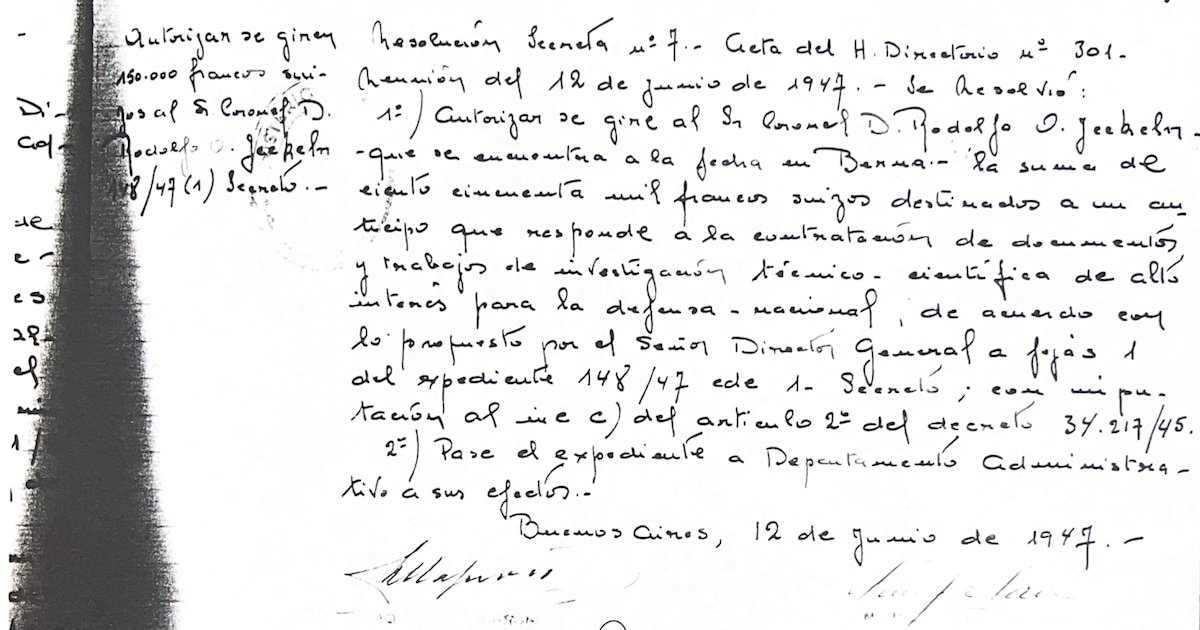 Autorizar se giren
150.000 francos sui-
zos al Sr Coronel D.
Rodolfo O. Jeckeln
148/47 (1) Secreto.-
Di-
ad-
de
e-
es
el
Resolución Secreta nº 7.- Acta del H. Directorio nº 301-
Reunión del 12 de junio de 1947.- Se Resolvió:
1º) Autorizar se gire al Sr Coronel D. Rodolfo O. Jeckeln-
-que se encuentra a la fecha en Berna.- la suma de
ciento cincuenta mil francos suizos destinados a un an-
ticipo que responde a la contratación de documentos
y trabajos de investigación técnico-científica de alto
interés para la defensa-nacional, de acuerdo con
lo propuesto por el Señor Director General a fojas 1
del expediente 148/47 cde 1- Secreto; con impu-
tación al inc c) del artículo 2º del decreto 34.217/45.
2º) Pase el expediente a Departamento Administra-
tivo a sus efectos.-
Buenos Aires, 12 de Junio de 1947.-